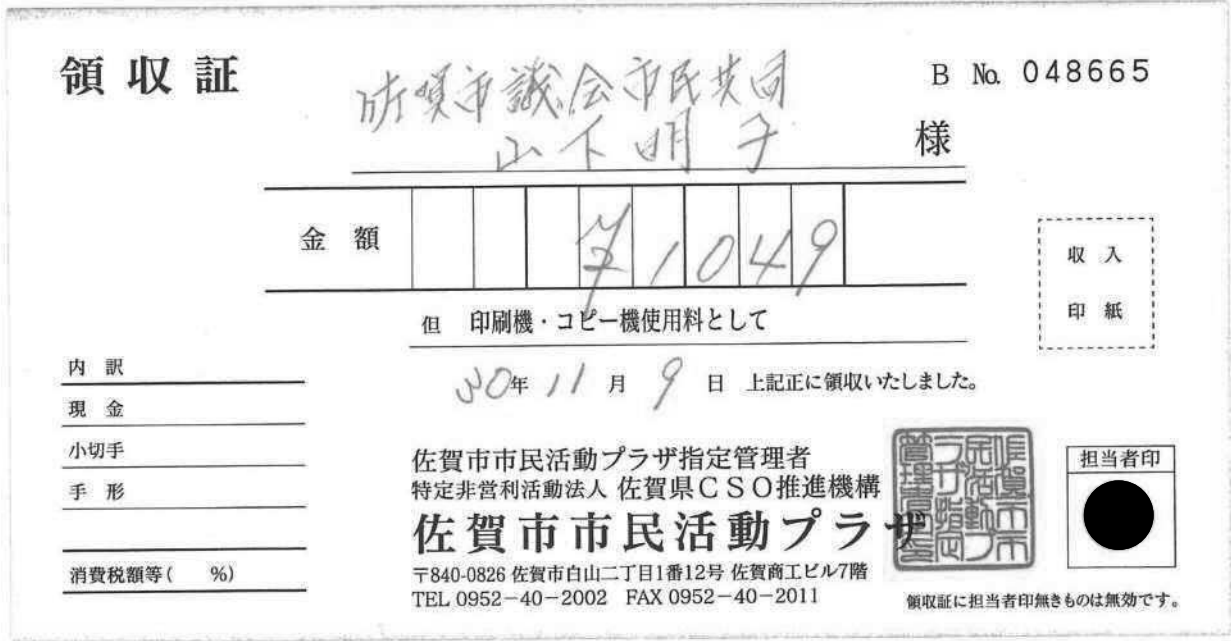 領収証
B No. 048665
佐賀市議会市民共同
山下明子 様
金額 ¥1049
但 印刷機・コピー機使用料として
収入
印紙
30年11月9日 上記正に領収いたしました。
内訳
現金
小切手
手形
消費税額等( %)
佐賀市市民活動プラザ指定管理者
特定非営利活動法人 佐賀県CSO推進機構
佐賀市市民活動プラザ
〒840-0826 佐賀市白山二丁目1番12号 佐賀商工ビル7階
TEL 0952-40-2002 FAX 0952-40-2011
担当者印
領収証に担当者印無きものは無効です。